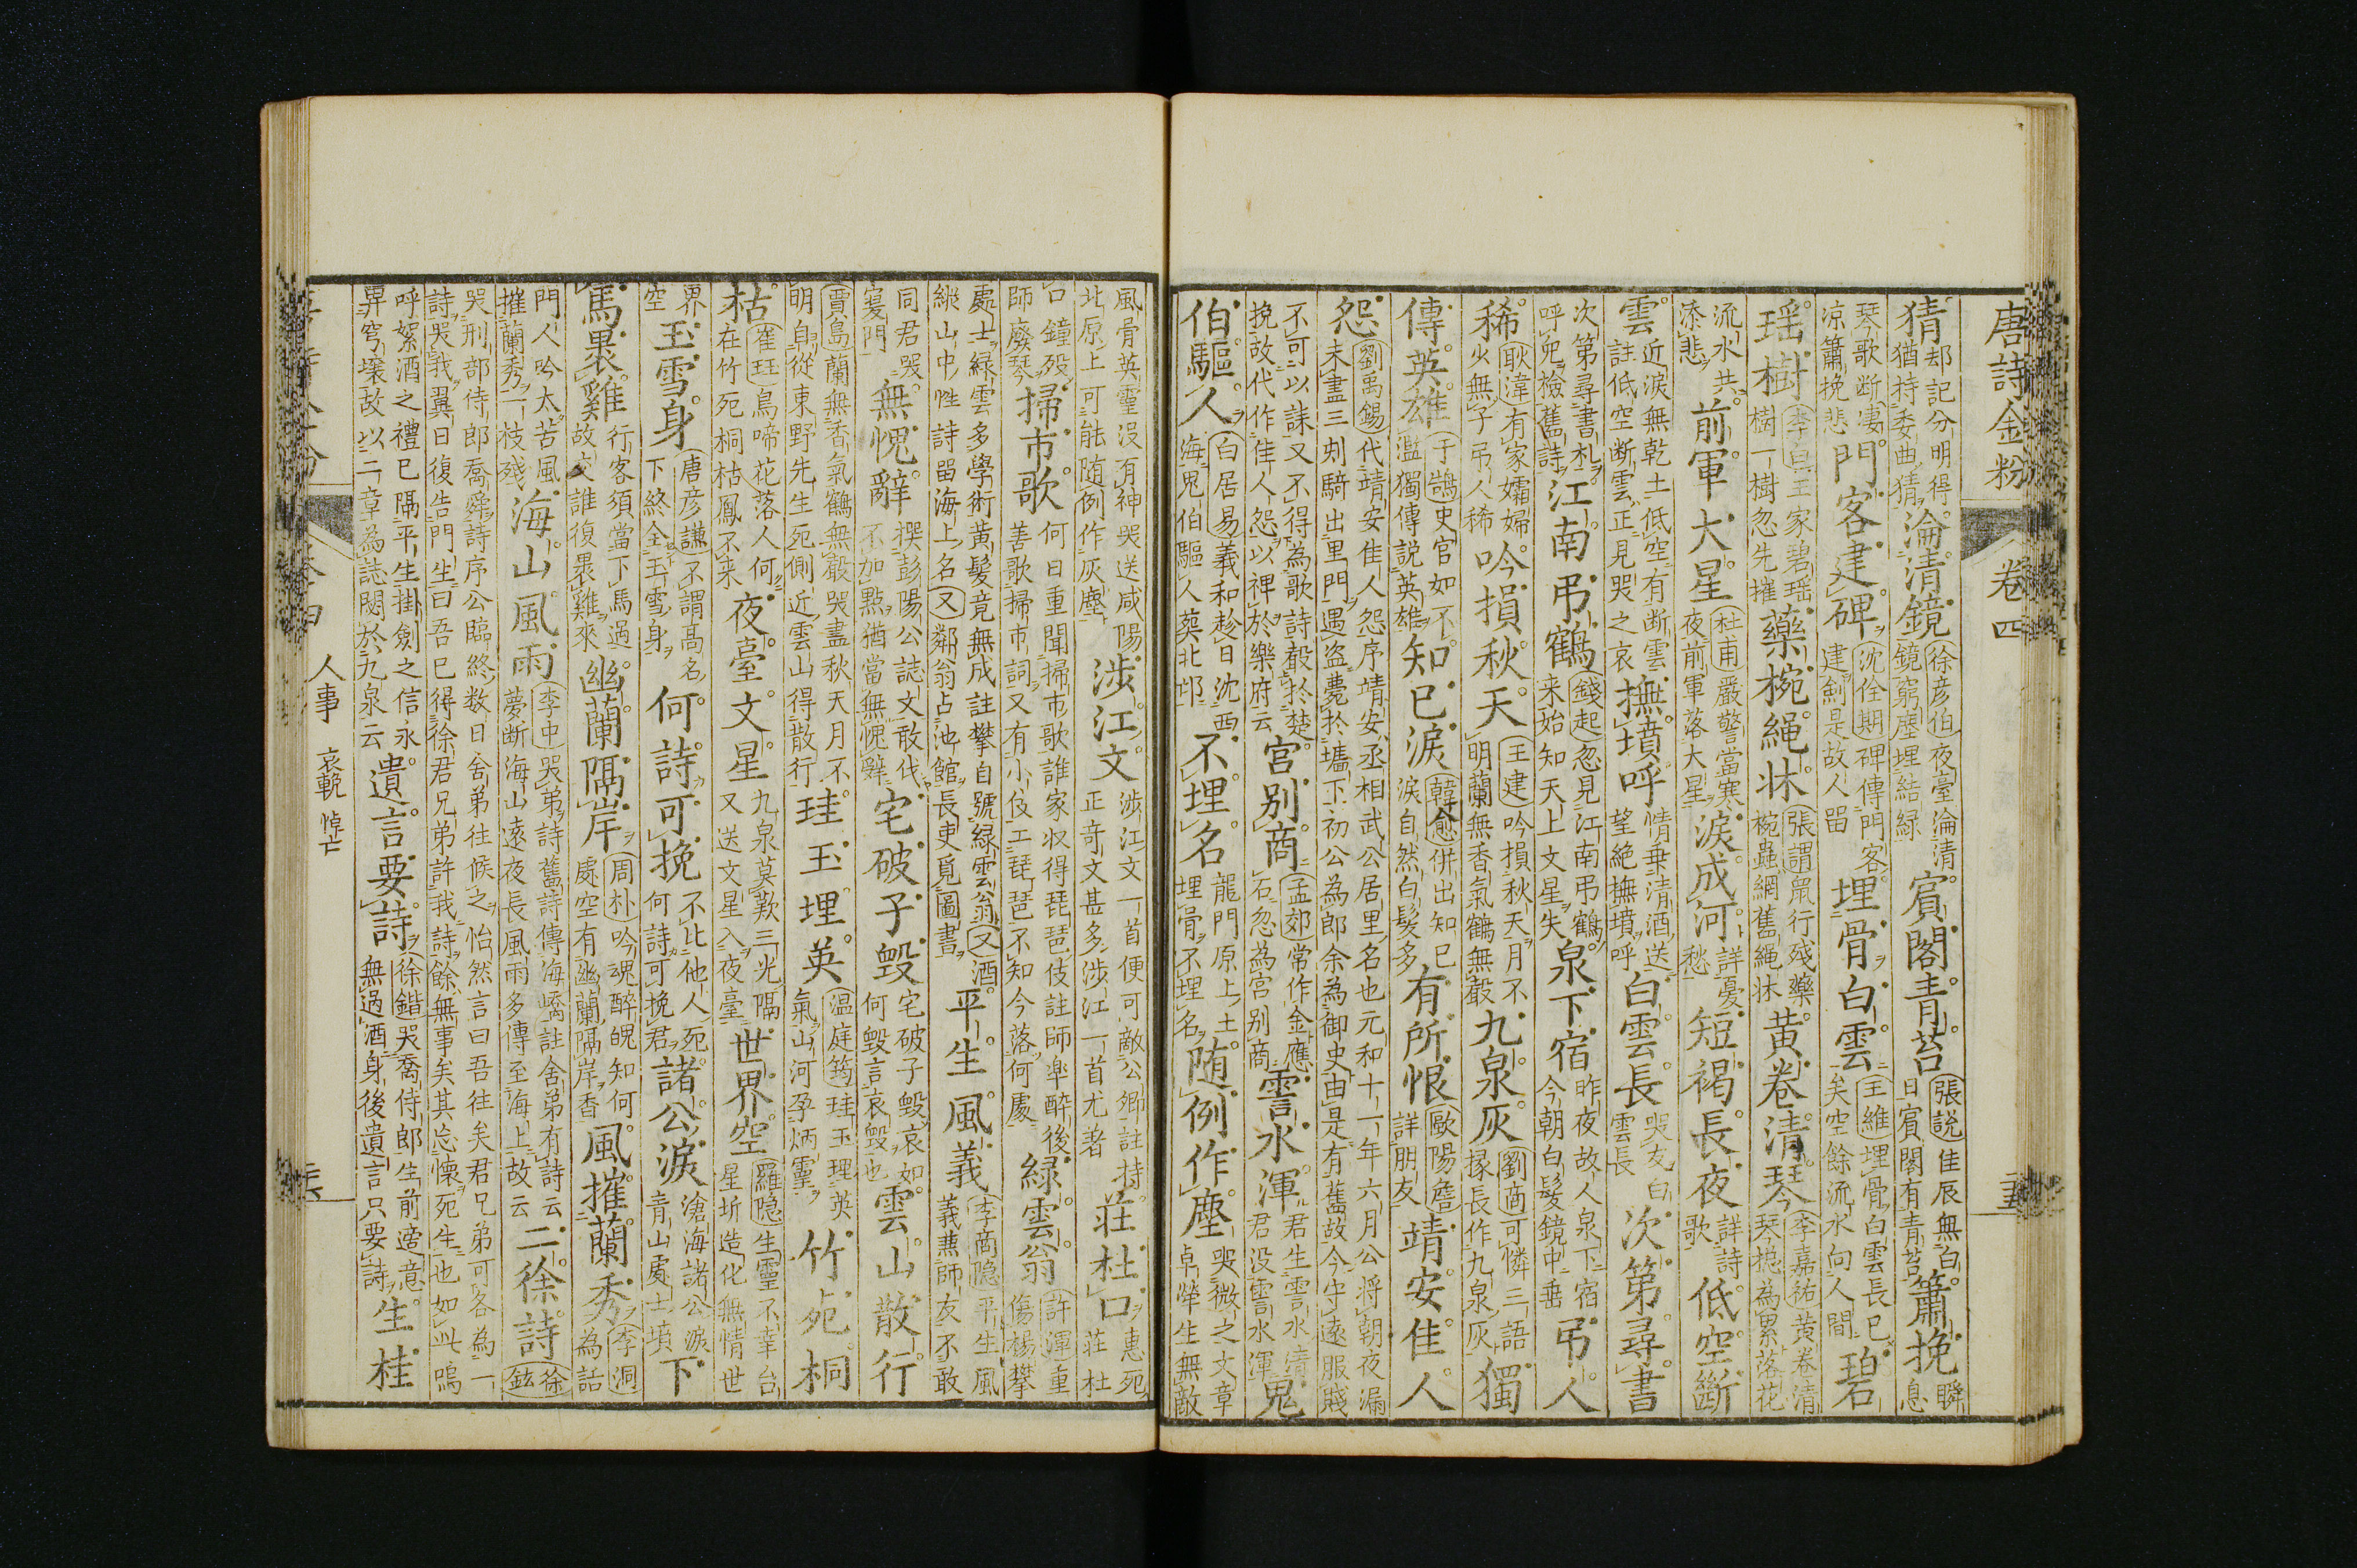 唐詩金粉　卷四
猜 却記分明得猶持委曲猜 淪清鏡 徐彦伯 夜臺淪清鏡窮塵埋結緑 賓閣青苔 張説 佳辰無白日賓閣有青苔 簫挽 瞬息
琴歌断凄凉簫挽悲 門客建碑 沈佺期 碑傳門客建劍是故人留 埋骨白雲 王維 埋骨白雲長已矣空餘流水向人間 碧
瑶樹 李白 王家碧瑶樹一樹忽先摧 藥椀繩牀 張謂 鼠行殘藥椀蟲網舊繩牀 黄卷清琴 李嘉祐 黄卷清琴揔為累落花
流水共添悲 前軍大星 杜甫 嚴警當寒夜前軍落大星 淚成河 詳憂愁 短褐長夜 詳詩歌 低空断
雲 近淚無乾土低空有断雲註低空断雲正見哭之哀 撫墳呼 情乗清酒送望絶撫墳呼 白雲長 哭友白雲長 次第尋書
次第尋書札呼兒撿舊詩 江南弔鶴 錢起 忽見江南弔鶴来始知天上文星失 泉下宿 昨夜故人泉下宿今朝白髮鏡中垂 弔人
稀 耿湋 有家孀婦火無子弔人稀 吟損秋天 王建 吟損秋天月不明蘭無香氣鶴無聲 九泉灰 劉商 可憐三語掾長作九泉灰 獨
傳英雄 于鵠 史官如不濫獨傳説英雄 知已淚 韓愈 併出知已淚自然白髮多 有所恨 歐陽詹 詳朋友 靖安佳人
怨 劉禹錫 代靖安佳人怨序靖安丞相武公居里名也元和十一年六月公将朝夜漏未盡三刻騎出里門遇盗薨於墻下初公為郎余為御史由是有舊故今守遠服賤
不可以誄又不得為歌詩聲於楚挽故代作佳人怨以裨於樂府云 宫别商 孟郊 常作金應石忽為宫别商 霅水渾 君生霅水清君没霅水渾 鬼
伯驅人 白居易 義和趁日沈西海鬼伯驅人葬北邙 不埋名 龍門原上土埋骨不埋名 随例作塵 哭微之文章卓犖生無敵
風骨英靈没有神哭送咸陽北原上可能随例作灰塵 涉江文 涉江文一首便可敵公卿註持正竒文甚多涉江一首尤著 荘杜口 惠死荘杜
口鐘殁師廢琴 掃市歌 何日重聞掃市歌誰家収得琵琶伎註師楽醉後善歌掃市詞又有小伎工琵琶不知今落何處 緑雲翁 許渾 重傷楊攀
處士緑雲多學術黄髮竟無成註攀自號緑雲翁 又 酒縱山中性詩留海上名 又 鄰翁占池館長吏覓圖書 平生風義 李商隠 平生風義兼師友不敢
同君哭寝門 無愧辭 撰彭陽公誌文敢代不加點猶當無愧辭 宅破子毁 宅破子毁哀如何毁言哀毁也 雲山散行
賈島 蘭無香氣鶴無聲哭盡秋天月不明自從東野先生死側近雲山得散行 珪玉埋英 温庭筠 珪玉埋英氣山河孕炳靈 竹死桐
枯 崔珏 鳥啼花落人何在竹死桐枯鳳不来 夜臺文星 九泉莫歎三光隔又送文星入夜臺 世界空 羅隠 生靈不幸台星坼造化無情世
界空 玉雪身 唐彦謙 不謂髙名下終全玉雪身 何詩可挽 不比他人死何詩可挽君 諸公淚 滄海諸公淚青山處士墳 下
馬褁雞 行客須當下馬過故交誰復褁雞來 幽蘭隔岸 周朴 吟魂醉魄知何處空有幽蘭隔岸香 風摧蘭秀 李洞 為話
門人吟太苦風摧蘭秀一枝殘 海山風雨 李中 哭弟詩舊詩傳海嶠註舍弟有詩云夢断海山遠夜長風雨多傳至海上故云 二徐詩 徐鉉
哭刑部侍郎喬舜詩序公臨終数日舍弟往候之怡然言曰吾往矣君兄弟可各為一詩哭我翼日復告門生曰吾已得徐君兄弟許我詩餘無事矣其忘懐死生也如此嗚
呼絮酒之禮已隔平生掛劍之信永畀穹壌故以二章為誌閟於九泉云 遺言要詩 徐鍇 哭喬侍郎生前適意無過酒身後遺言只要詩 生桂
人事　哀輓　悼亡